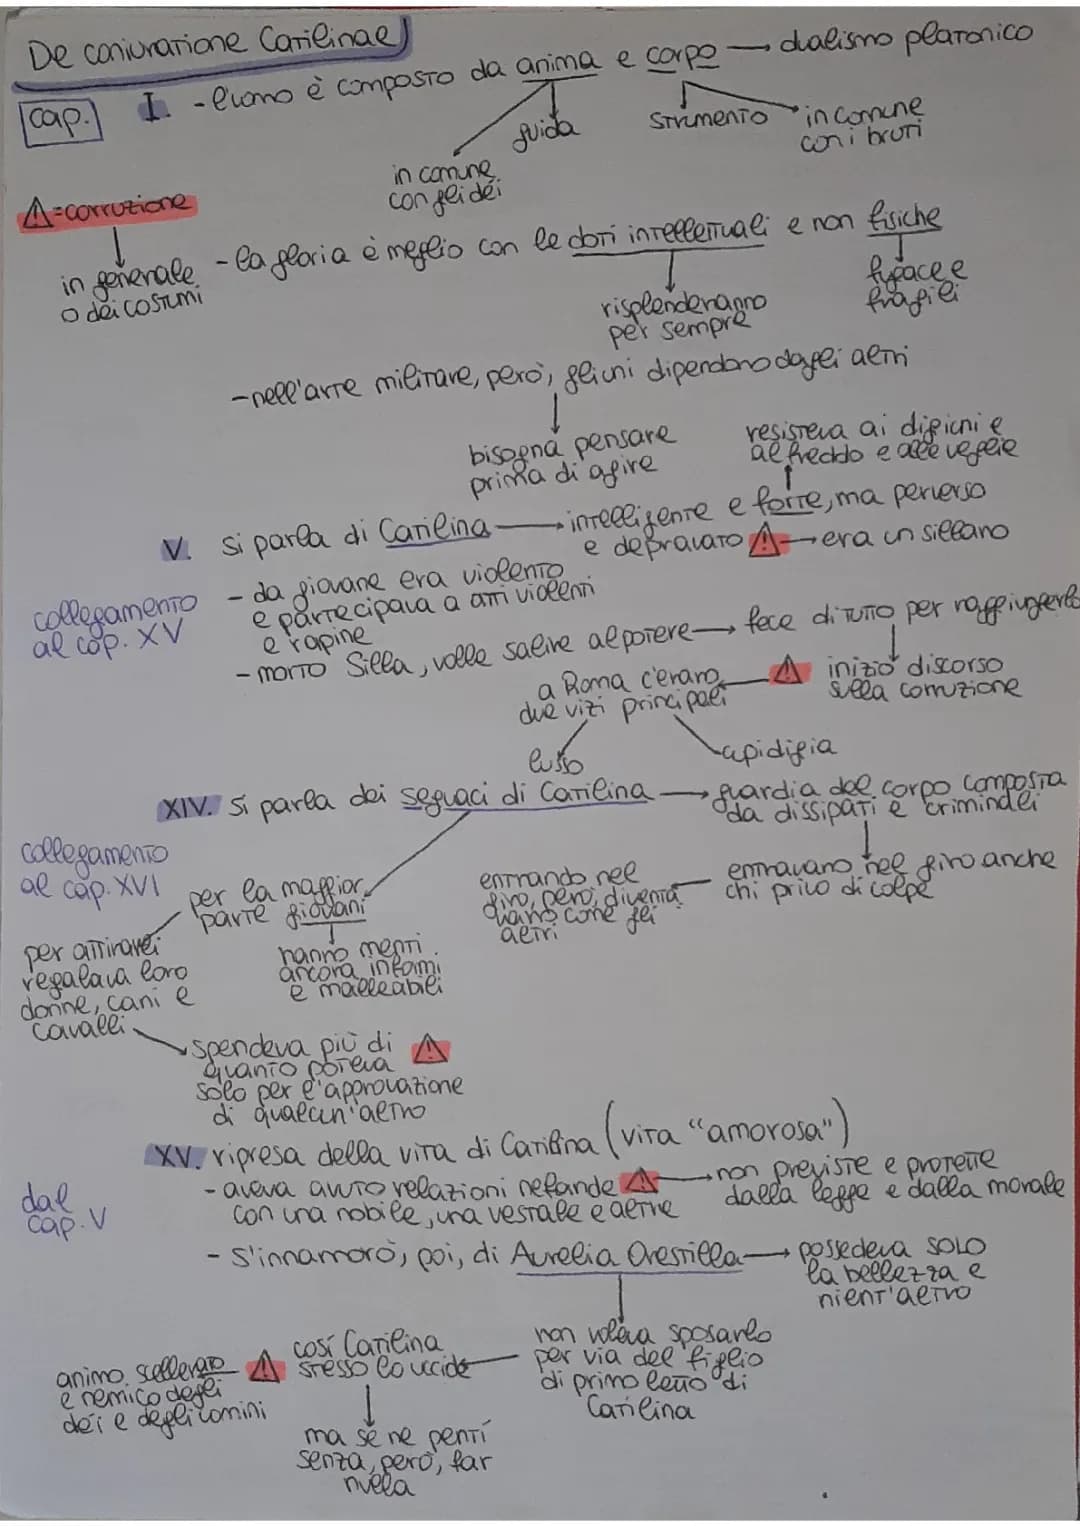 De coniuratione Catilinae
cap. I. - l'uomo è composto da anima e corpo → dualismo platonico
guida
strumento
in comune
con i bruti
in comune
con gli dèi
⚠=corruzione
in generale
o dei costumi
- la gloria è meglio con le doti intellettuali e non fisiche
risplenderanno
per sempre
fugaci e
fragili
- nell'arte militare, però, gli uni dipendono dagli altri
bisogna pensare
prima di agire
resisteva ai digiuni e
al freddo e alle veglie
V. si parla di Catilina → intelligente e forte, ma perverso
e depravato ⚠ → era un sillano
collegamento
al cap. XV
- da giovane era violento
e partecipava a atti violenti
e rapine
- morto Silla, volle salire al potere → fece di tutto per raggiungerlo
⚠ inizio discorso
sulla corruzione
a Roma c'erano
due vizi principali
lusso
cupidigia
XIV. Si parla dei seguaci di Catilina → guardia del corpo composta
da dissipati e criminali
collegamento
al cap. XVI
per la maggior
parte giovani
entrando nel
giro, però, diventa
vano come gli
altri
entravano nel giro anche
chi privo di colpe
per attirarli
regalava loro
donne, cani e
cavalli
hanno menti
ancora informi
e malleabili
spendeva più di ⚠
quanto poteva
solo per l'approvazione
di qualcun'altro
XV. ripresa della vita di Catilina (vita "amorosa")
dal
cap. V
- aveva avuto relazioni nefande ⚠ → non previste e protette
con una nobile, una vestale e altre
dalla legge e dalla morale
- S'innamorò, poi, di Aurelia Orestilla → possedeva SOLO
la bellezza e
nient'altro
non voleva sposarlo
per via del figlio
di primo letto di
Catilina
così Catilina
stesso lo uccide
⚠ animo scellerato
e nemico degli
dei e degli uomini
ma se ne pentì
senza, però, far
nulla